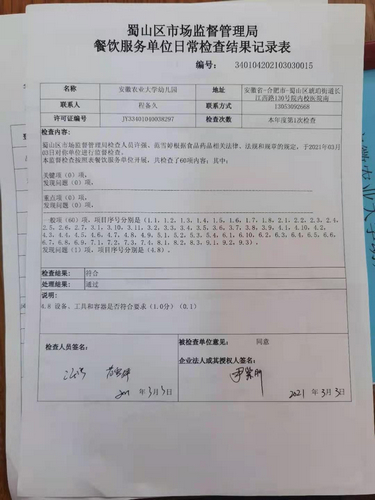 蜀山区市场监督管理局
餐饮服务单位日常检查结果记录表
编号: 340104202103030015
名称 安徽农业大学幼儿园 地址 安徽省-合肥市-蜀山区琥珀街道长江西路130号院内校医院南
联系人 程备久 联系方式 13953092668
许可证编号 JY33401040038297 检查次数 本年度第1次检查
检查内容:
蜀山区市场监督管理局检查人员许强、范雪婷根据食品药品相关法律、法规和规章的规定,于2021年03月03日对你单位进行监督检查。
本监督检查按照表餐饮服务单位开展,共检查了60项内容;其中:
关键项(0)项,
发现问题(0)项,
重点项(0)项,
发现问题(0)项,
一般项(60)项,项目序号分别是(1.1, 1.2, 1.3, 1.4, 1.5, 1.6, 1.7, 1.8, 2.1, 2.2, 2.3, 2.4,
2.5, 2.6, 2.7, 3.1, 3.10, 3.11, 3.2, 3.3, 3.4, 3.5, 3.6, 3.7, 3.8, 3.9, 4.1, 4.10, 4.2,
4.5, 4.4, 4.5, 4.6, 4.7, 4.8, 4.9, 5.1, 5.2, 5.3, 5.4, 6.1, 6.10, 6.2, 6.3, 6.4, 6.5, 6.6,
6.7, 6.8, 6.9, 7.1, 7.2, 7.3, 7.4, 8.1, 8.2, 8.3, 9.1, 9.2, 9.3),
发现问题(1)项,项目序号分别是(4.8)。
检查结果: 符合
处理结果: 通过
说明:
4.8 设备、工具和容器是否符合要求(1.0分)(0.1)
检查人员签名:
被检查单位意见: 同意
企业法人或其授权人签名:
2021 年3月3日
2021 年 3月 3日